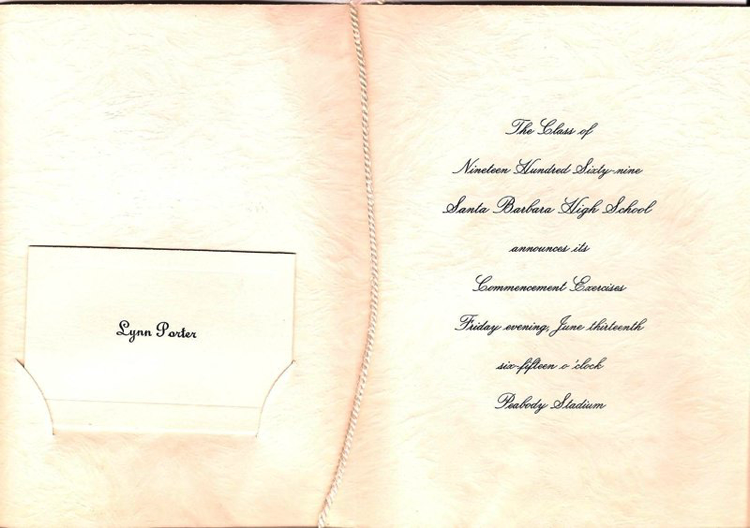 Lynn Porter
The Class of
Nineteen Hundred Sixty-nine
Santa Barbara High School
announces its
Commencement Exercises
Friday evening, June thirteenth
six-fifteen o'clock
Peabody Stadium